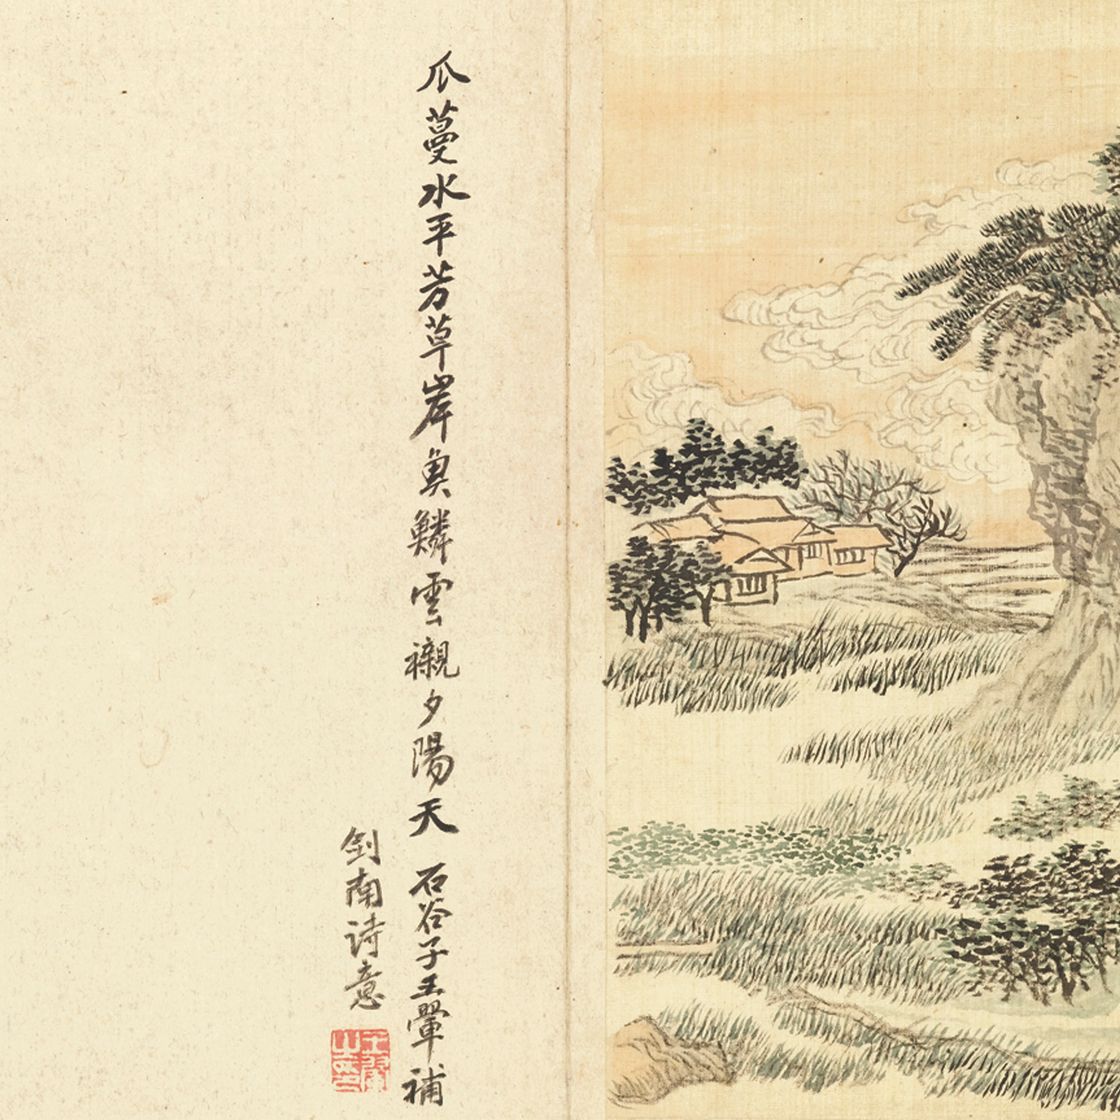 瓜蔓水平芳草岸魚鱗雲襯夕陽天 石谷子王翬補
劍南诗意
王翬之印